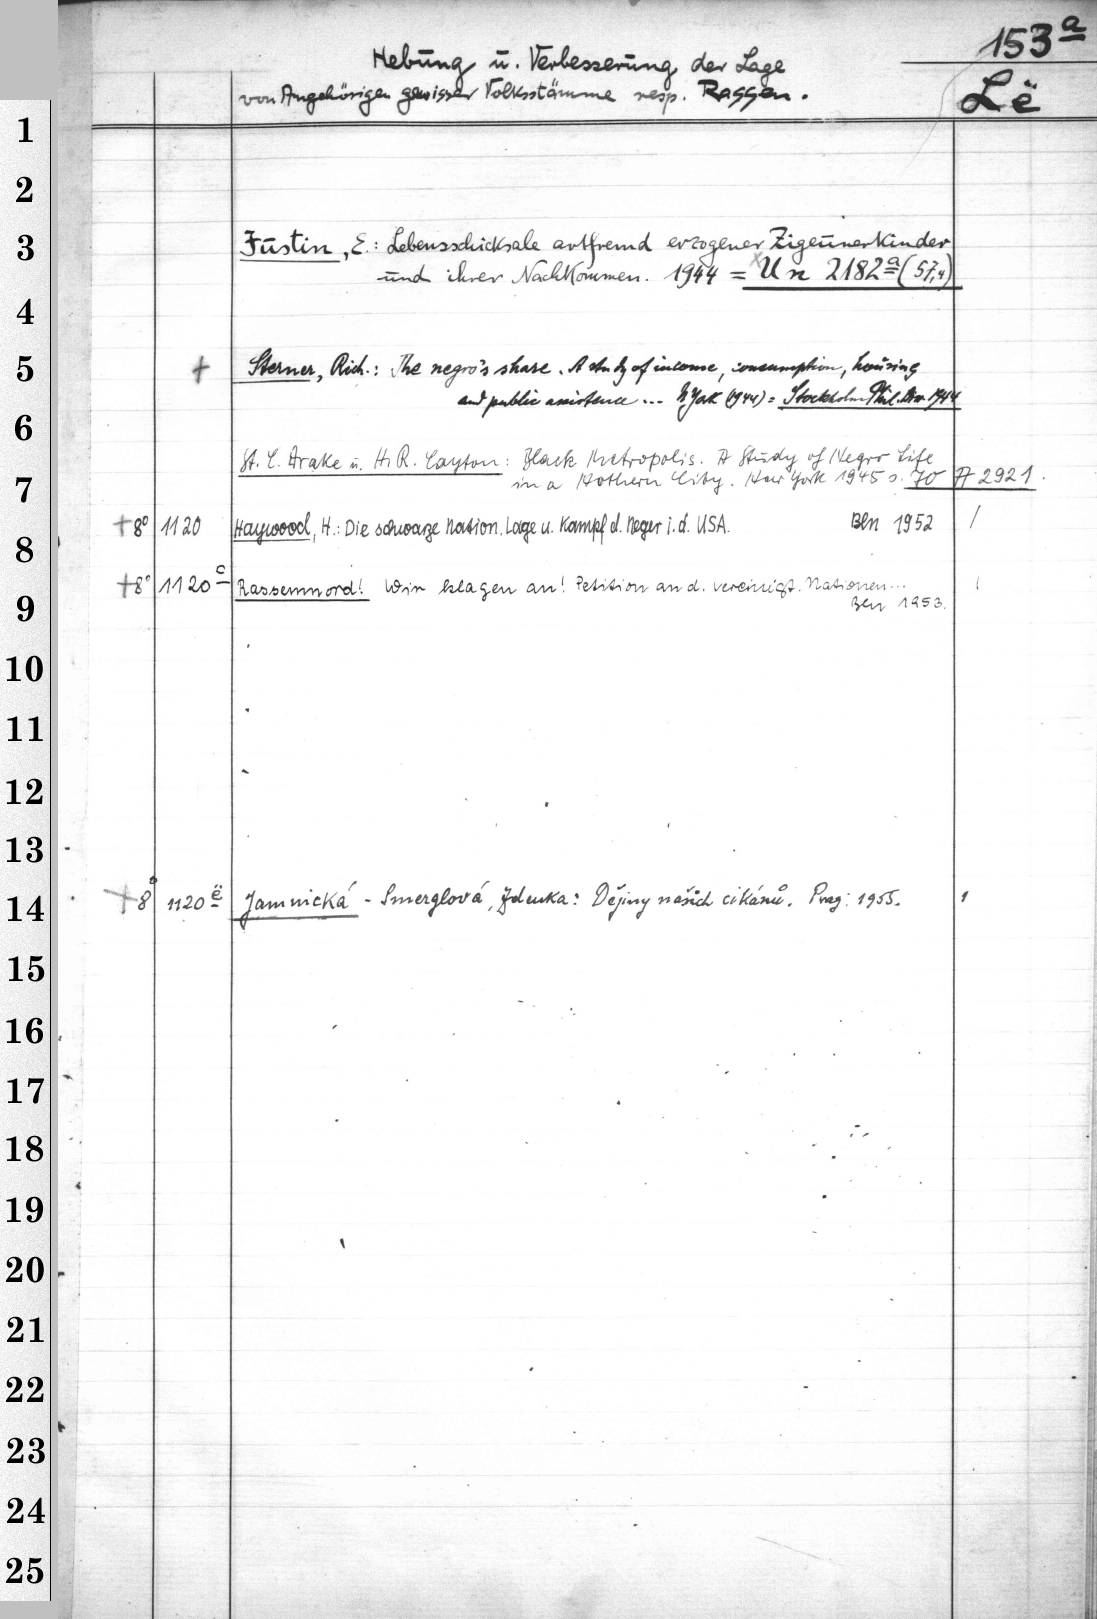 153a
Hebung u. Verbesserung der Lage
von Angehörigen gewisser Volksstämme resp. Raççen.
Lë
1
2
3 Justin, E.: Lebensschicksale artfremd erzogener Zigeunerkinder
und ihrer Nachkommen. 1944 = Un 2182a (57,4)
4
5 + Sterner, Rich.: The negro's share. A study of income, consumption, housing
and public assistence... N York (1944) = Stockholm Phil. Diss. 1944
6
St. C. Drake u. H. R. Cayton: Black Metropolis. A Study of Negro Life
7 in a Nothern City. New York 1945 s. 70 A 2921.
8 + 8° 1120 Haywoood, H.: Die schwarze Nation. Lage u. Kampf d. Neger i. d. USA. Bln 1952 /
9 + 8° 1120c Rassenmord! Wir klagen an! Petition an d. vereinigt. Nationen...
Bln 1953.
10
11
12
13
14 + 8° 1120ë Jamnická - Smerglová, Zdenka: Dějiny našich cikánů. Prag: 1955.
15
16
17
18
19
20
21
22
23
24
25